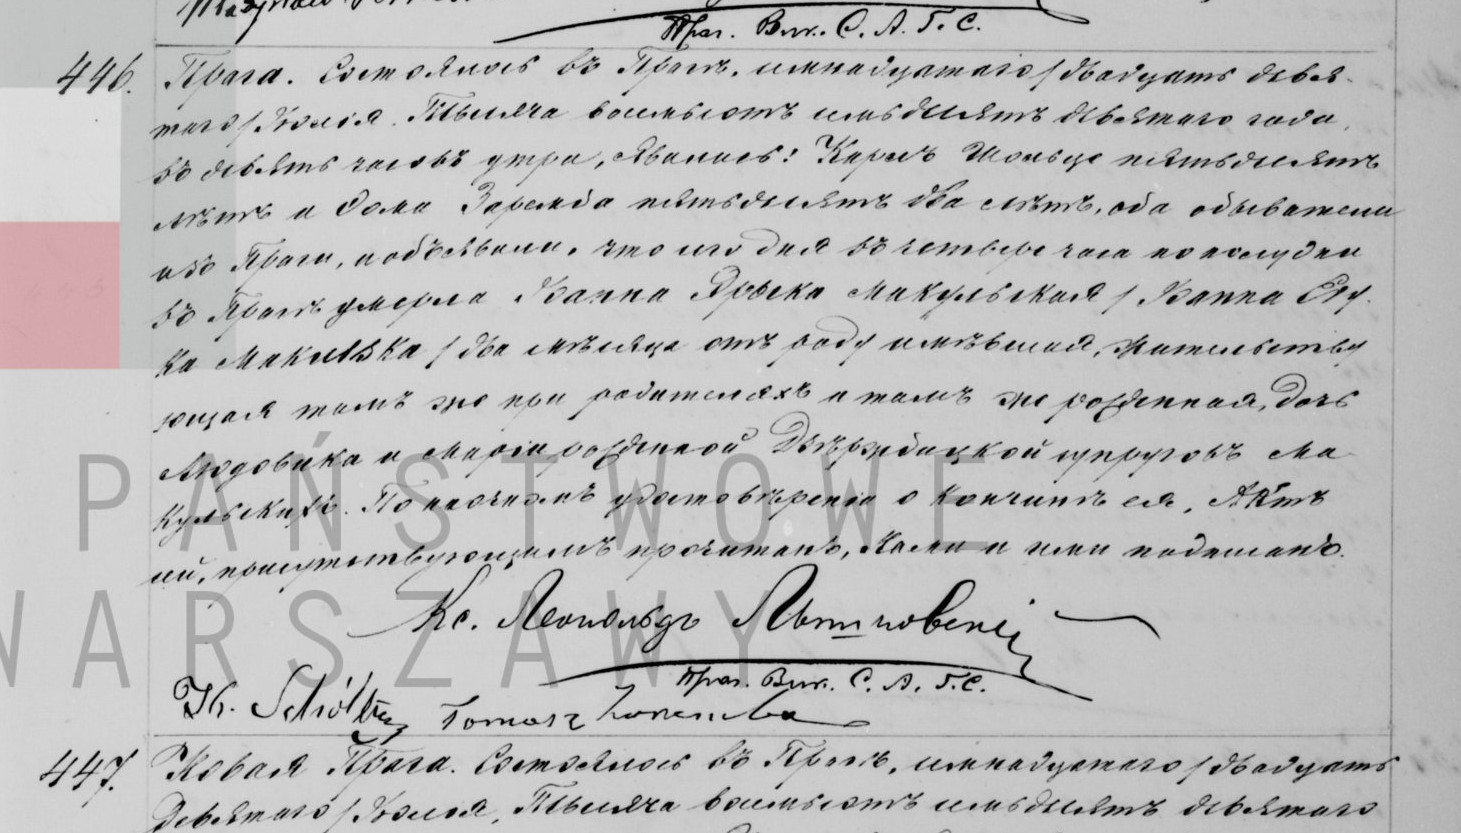 Праг. Вик. С. А. Г. С.
446. Прага. Состоялось въ Прагѣ, семнадцатаго / двадцать девя-
таго / Іюля. Тысяча восемьсотъ семьдесятъ девятаго года,
въ девять часовъ утра, явились: Кароль Шольце пятьдесятъ
лѣтъ и Ѳома Заремба пятьдесятъ два лѣтъ, оба обыватели
изъ Праги, и объявили, что сего дня въ четвере часа по полудни
въ Прагѣ умерла Іоанна Макульская / Joanna
Makulska / два мѣсяца отъ роду имѣвшая, жительству
ющая тамъ же при родителяхъ и тамъ же рожденная, дочь
Людовика и Маріи рожденной супруговъ Ма
кульскихъ. По наочномъ удостовѣреніи о кончинѣ ея, Актъ
сей, присутствующимъ прочитанъ, Нами и ими подписанъ.
Кс. Леопольдъ
Праг. Вик. С. А. Г. С.
K. Schöltze Tomasz Zaremba
447. Новая Прага. Состоялось въ Прагѣ, семнадцатаго / двадцать
девятаго / Іюля, Тысяча восемьсотъ семьдесятъ девятаго
PAŃSTWOWE
WARSZAWY